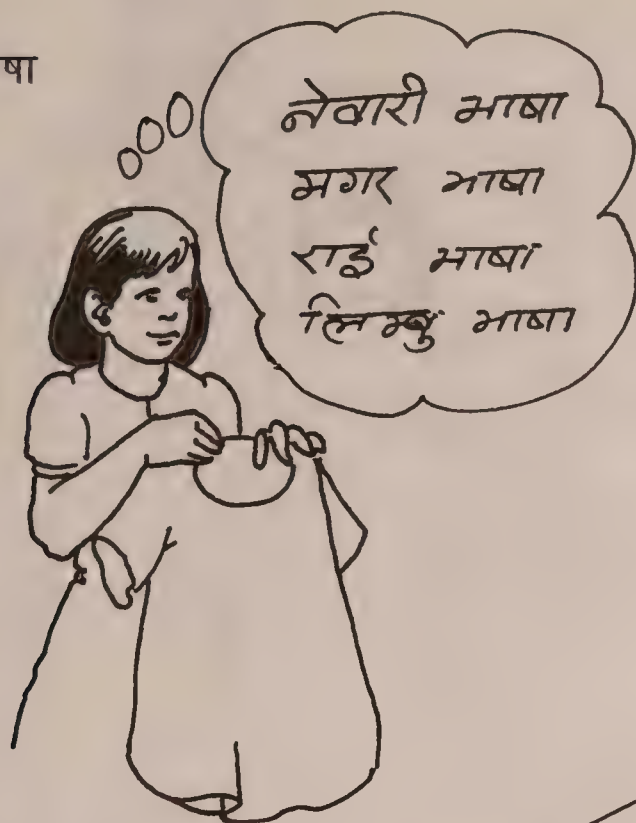 षा
नेवारी भाषा
मगर भाषा
राई भाषा
लिम्बु भाषा